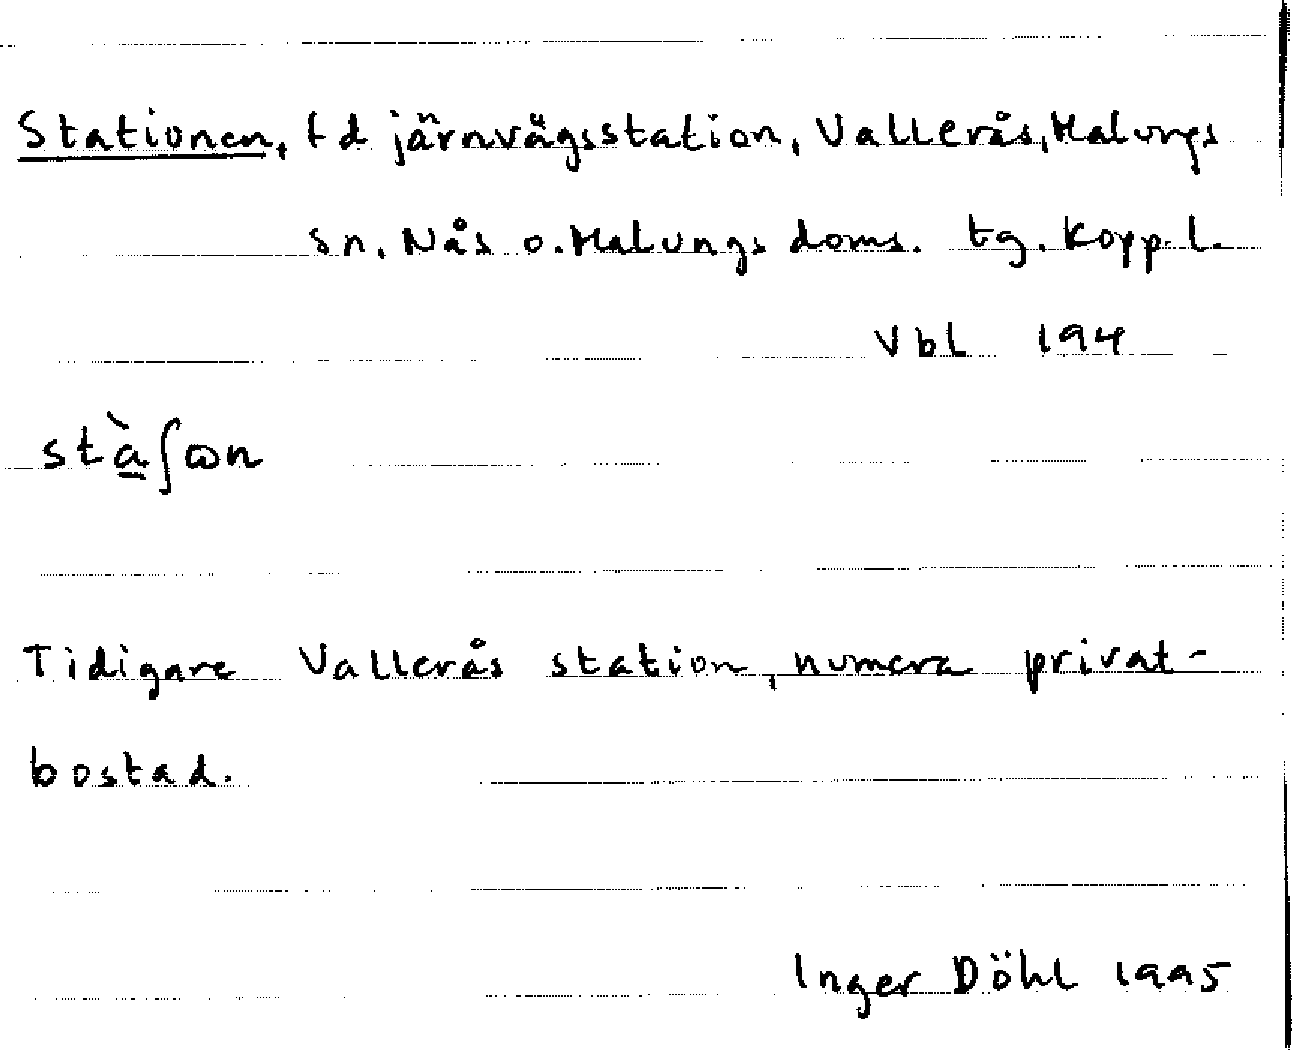 Stationen, f d järnvägsstation, Vallerås, Malungs
sn, Nås o. Malungs doms. tg. Kopp. l.
Vbl 194
stà̱ʃωn
Tidigare Vallerås station, numera privat-
bostad.
Inger Döhl 1995